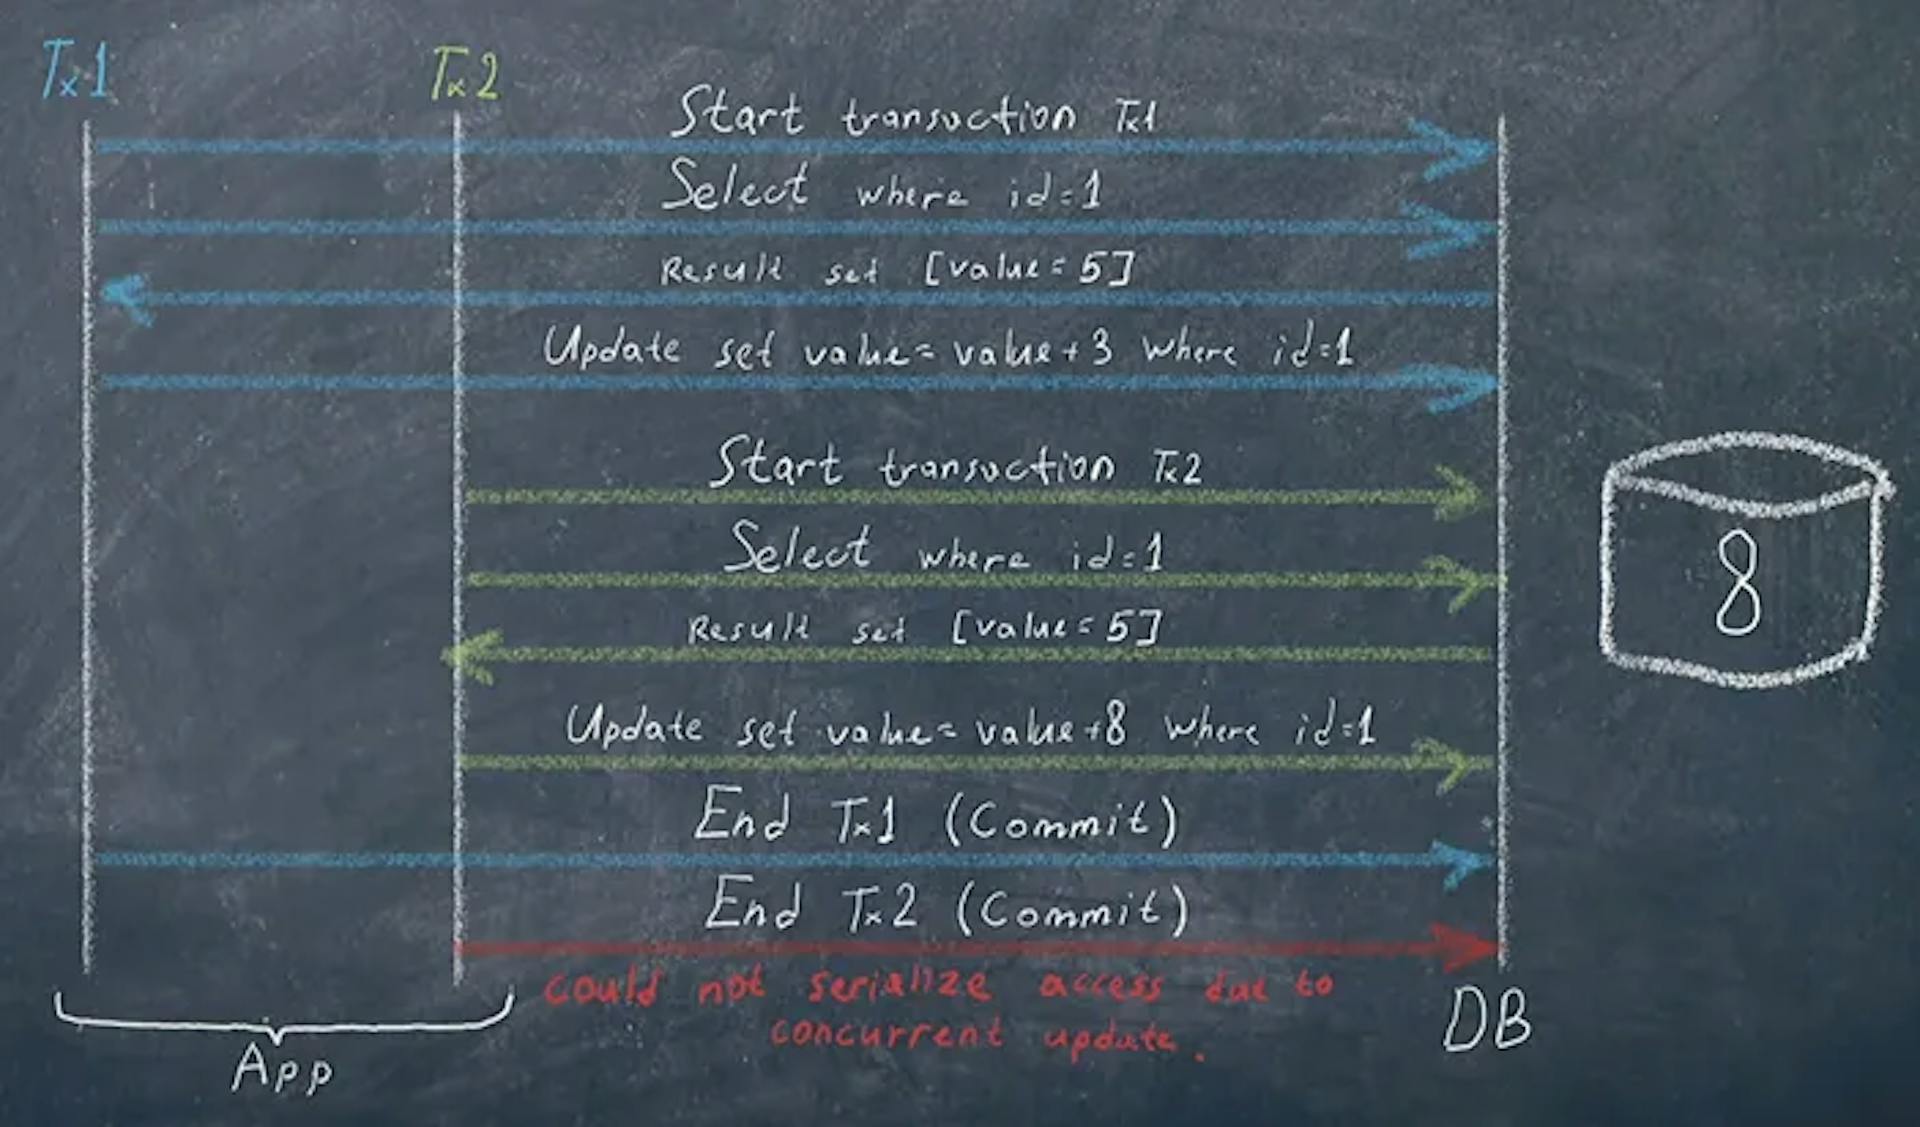 Tx1
Tx2
Start transaction Tx1
Select where id=1
Result set [value=5]
Update set value=value+3 where id=1
Start transaction Tx2
Select where id=1
Result set [value=5]
8
Update set value=value+8 where id=1
End Tx1 (Commit)
End Tx2 (Commit)
could not serialize access due to
concurrent update.
DB
App